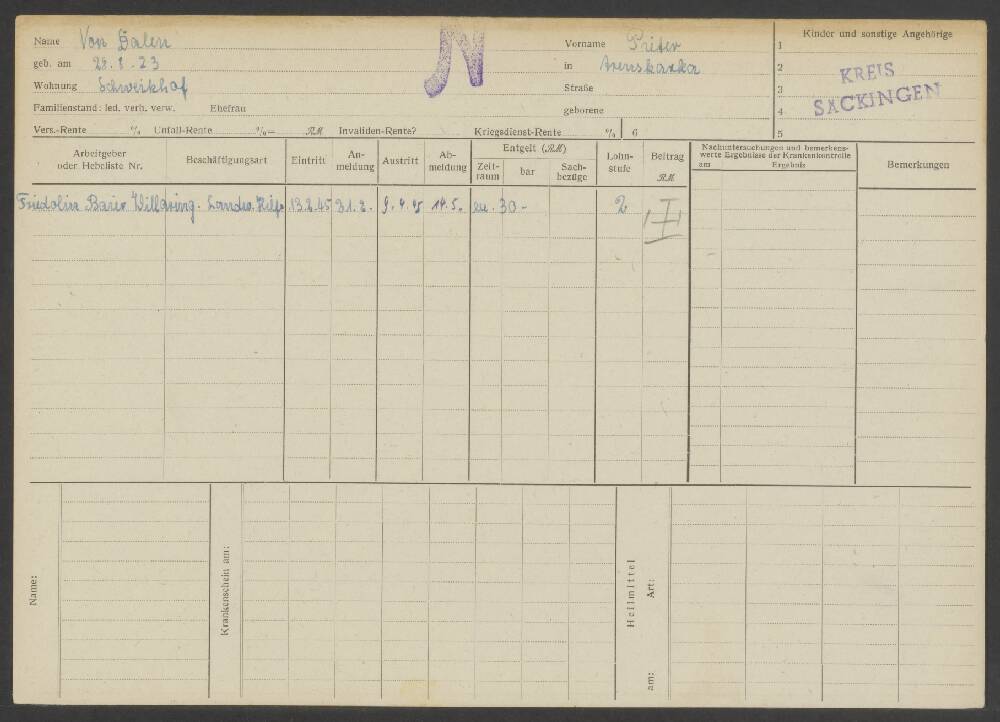 Name Von Dalen
N
Vorname Pieter
Kinder und sonstige Angehörige
geb. am 29.8.23
in
1
2
3
4
5
KREIS
SÄCKINGEN
Wohnung Schweikhof
Straße
Familienstand: led. verh. verw. Ehefrau geborene
Vers.-Rente % Unfall-Rente %= RM. Invaliden-Rente? Kriegsdienst-Rente % 6
Arbeitgeber
oder Hebeliste Nr.
Beschäftigungsart
Eintritt
An-
meldung
Austritt
Ab-
meldung
Entgelt (RM)
Zeit-
raum
bar
Sach-
bezüge
Lohn-
stufe
Beitrag
RM
Nachuntersuchungen und bemerkens-
werte Ergebnisse der Krankenkontrolle
am Ergebnis
Bemerkungen
Fridolin Baier Willaring. Landw. Hilfe 13.2.45 31.3. 9.4.45 14.5. 30- 2 I
Name:
Krankenschein am:
Heilmittel
Art:
am: